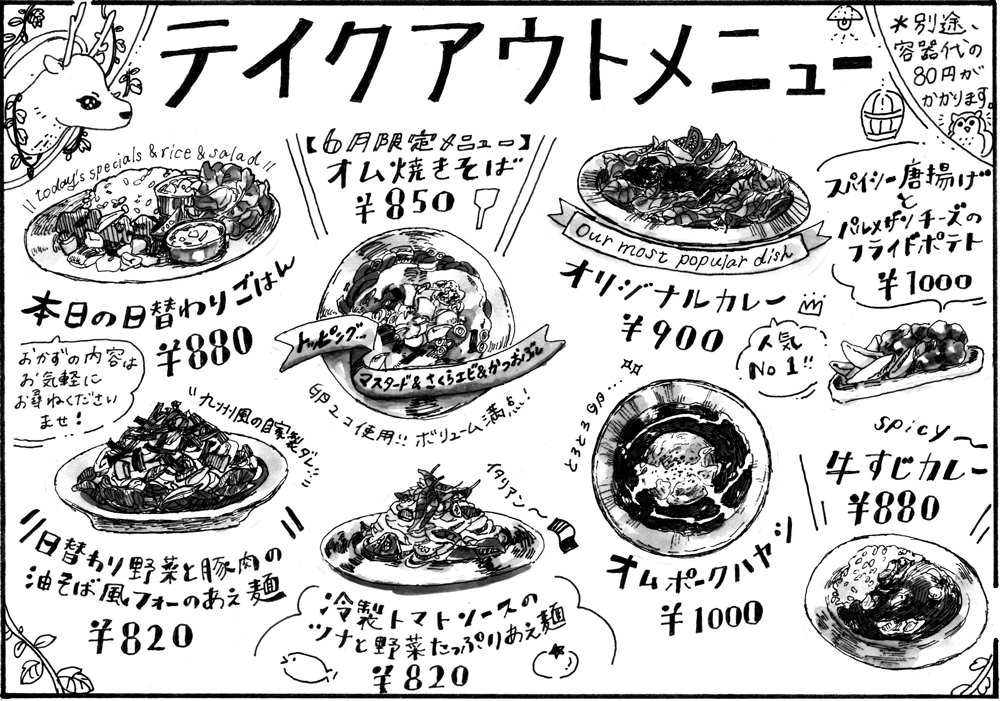 テイクアウトメニュー
*別途、
容器代の
80円が
かかります。
today's specials & rice & salad!!
本日の日替わりごはん
¥880
おかずの内容は
お気軽に
お尋ねください
ませ!
【6月限定メニュー】
オム焼きそば
¥850
トッピング…
マスタード&さくらエビ&かつおぶし
卵2コ使用!!ボリューム満点!
Our most popular dish
オリジナルカレー
¥900
人気
No 1!!
スパイシー唐揚げ
と
パルメザンチーズの
フライドポテト
¥1000
"九州風の自家製ダレ!!"
日替わり野菜と豚肉の
油そば風フォーのあえ麺
¥820
イタリアン〜
冷製トマトソースの
ツナと野菜たっぷりあえ麺
¥820
とろとろ卵…
オムポークハヤシ
¥1000
spicy〜
牛すじカレー
¥880